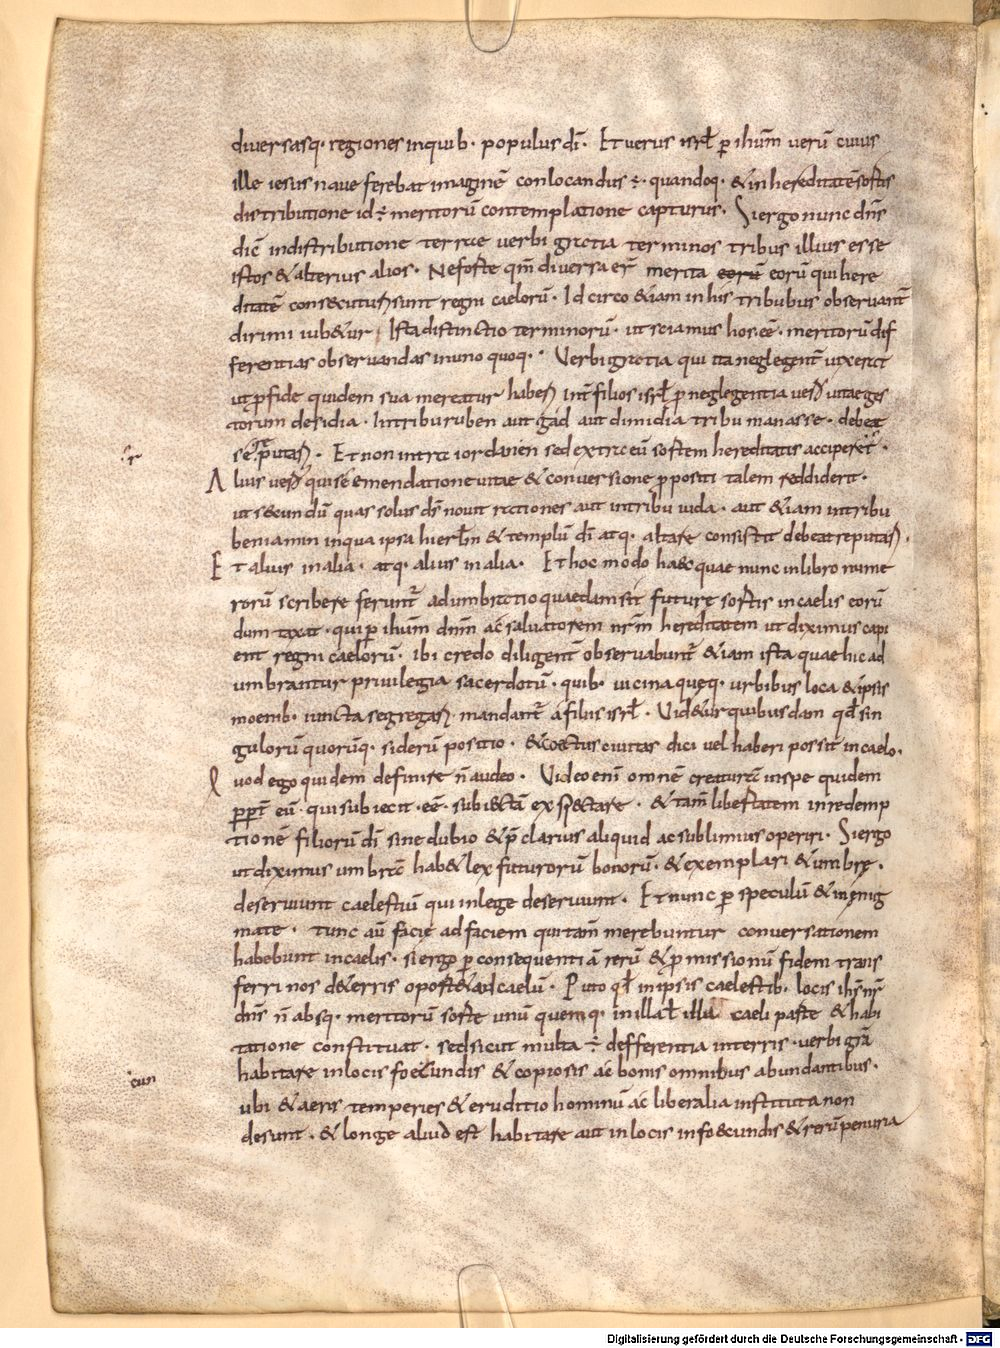 diuersasq· regiones inquib· populus dī· Et uerus isrł p ihūm uerū cuius
ille iesus naue ferebat imaginē conlocandus ÷· quandoq· & in hereditatē sortis
distributione id ÷ meritorū contemplatione capturus· Si ergo nunc dn̄s
dicē indistributione terrae uerbi gratia terminos tribus illius esse
istos & alterius alios· Ne forte qm̄ diuersa er̄ merita eorū eorū qui here
ditatē consecuturi sunt regni caelorū· Idcirco & iam in his tribubus obseruant
dirimi iub&ur Ista distinctio terminorū· ut sciamus hos· eē· meritorū dif
ferentias obseruandas in uno quoq·· Verbi gratia qui ita neglegent̄ uixerit
ut p fide quidem sua mereatur haberi int̄ filios isrł p neglegentia uero uitae ges
torum desidia· In tribu ruben aut gad aut dimidia tribu manasse· debeat
se putari· Et non intra iordanen sed extra eū sortem hereditatis acciperet·
Alius uero qui se emendatione uitae & conuersione ppositi talem reddiderit·
ut secundū quas solus ds̄ nouit rationes aut intribu iuda· aut & iam intribu
beniamin inqua ipsa hierłm & templū dī atq· altare consistit debeat reputari·
Et alius in alia· atq· alius in alia· Et hoc modo haec quae nunc inlibro nume
rorū scribere ferunt̄ adumbratio quaedam sit future sortis incaelis eorū
dum taxat· qui p ihūm dnm̄ ac saluatorem nrm̄ hereditatem ut diximus capi
ent regni caelorū· ibi credo diligent̄ obseruabunt̄ & iam ista quae hic ad
umbrantur priuilegia sacerdotū· quib· uicina queq· urbibus loca & ipsis
moenib· iuncta segregari mandant̄ a filiis isrł· Vid&ur quibusdam qd̄ sin
gulorū quorūq· siderū positio· & coetus ciuitas dici uel haberi possit in caelo·
Quod ego quidem definire n̄ audeo· Video enī omnē creaturā inspe quidem
ppt̄ eū· qui subiecit· eē· subiectā exspectare· & tam̄ libertatem inredemp
tionē filiorū dī sine dubio & p̄clarius aliquid ac sublimius operiri· Si ergo
ut diximus umbrā hab& lex futurorū bonorū· & exemplari & umbrę·
deseruiunt caelestiū qui inlege deseruiunt· Et nunc p speculū & in enig
mate· tunc aū facie ad faciem qui tam̄ merebuntur conuersationem
habebunt in caelis· si ergo p consequentiā rerū & pmissionū fidem trans
ferri nos d& erris oport& ad caelū· Puto qd̄ in ipsis caelestib· locis ihs̄ nr̄
dn̄s n̄ absq· meritorū sorte unū quemq· in illa ł illa caeli parte & habi
tatione constituat· sed sicut multa ÷ defferentia in terris· uerbi grā
habitare inlocis foecundis & copiosis ac bonis omnibus abundantibus·
ubi & aeris temperies & eruditio hominū ac liberalia instituta non
desunt· & longe aliud est habitare aut inlocis infoecundis & rerū penuria
Digitalisierung gefördert durch die Deutsche Forschungsgemeinschaft - DFG